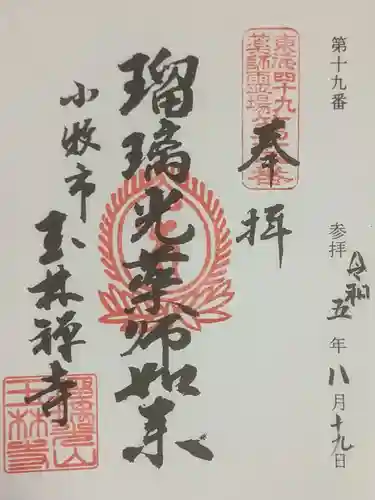 第十九番
参拝 令和五年八月十九日
東海四十九
薬師霊場第十九番
奉拝
瑠璃光薬師如来
小牧市
玉林禅寺
玉林寺